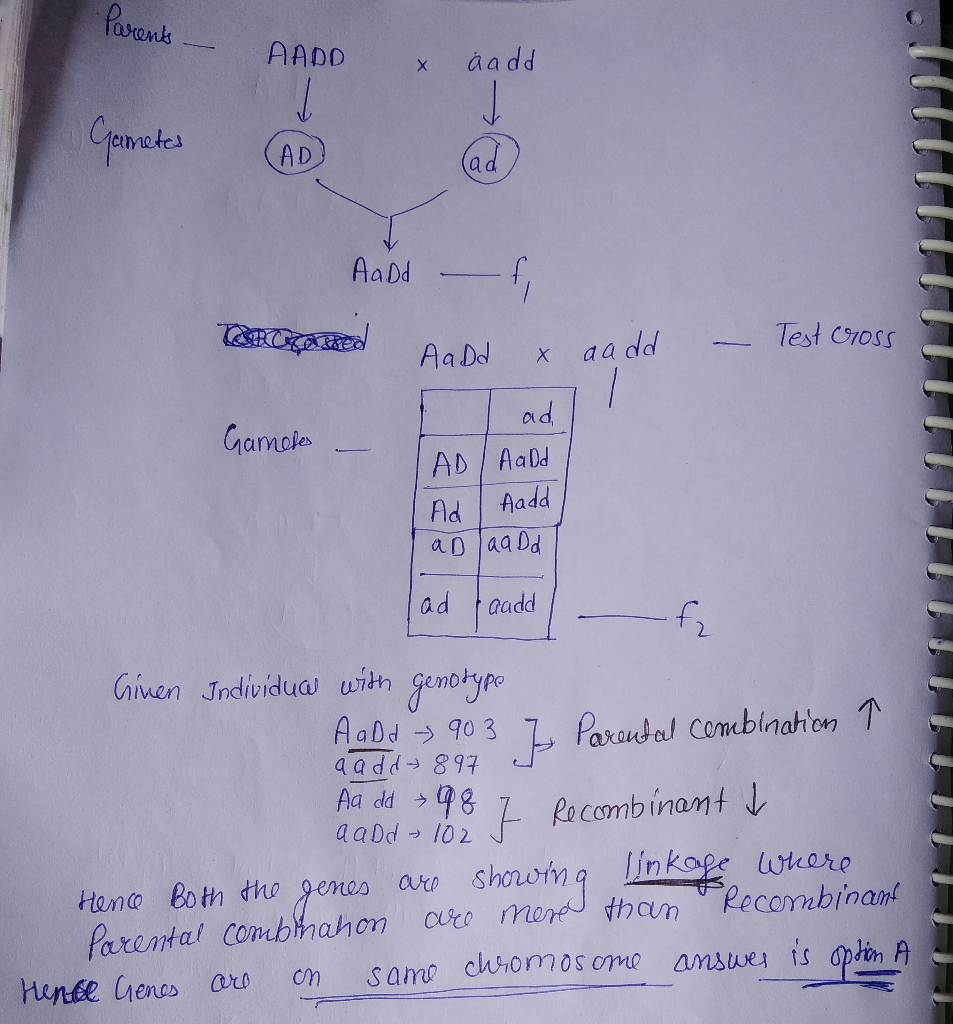 Parents —
AADD x aadd
Gametes AD ad
AaDd — f1
AaDd x aadd — Test cross
ad
Gametes — AD AaDd
Ad Aadd
aD aaDd
ad aadd — f2
Given Individual with genotype
AaDd → 903 Parental combination ↑
aadd → 897
Aadd → 98 Recombinant ↓
aaDd → 102
Hence Both the genes are showing linkage where
Parental combination are more than Recombinant
Hence Genes are on same chromosome answer is option A